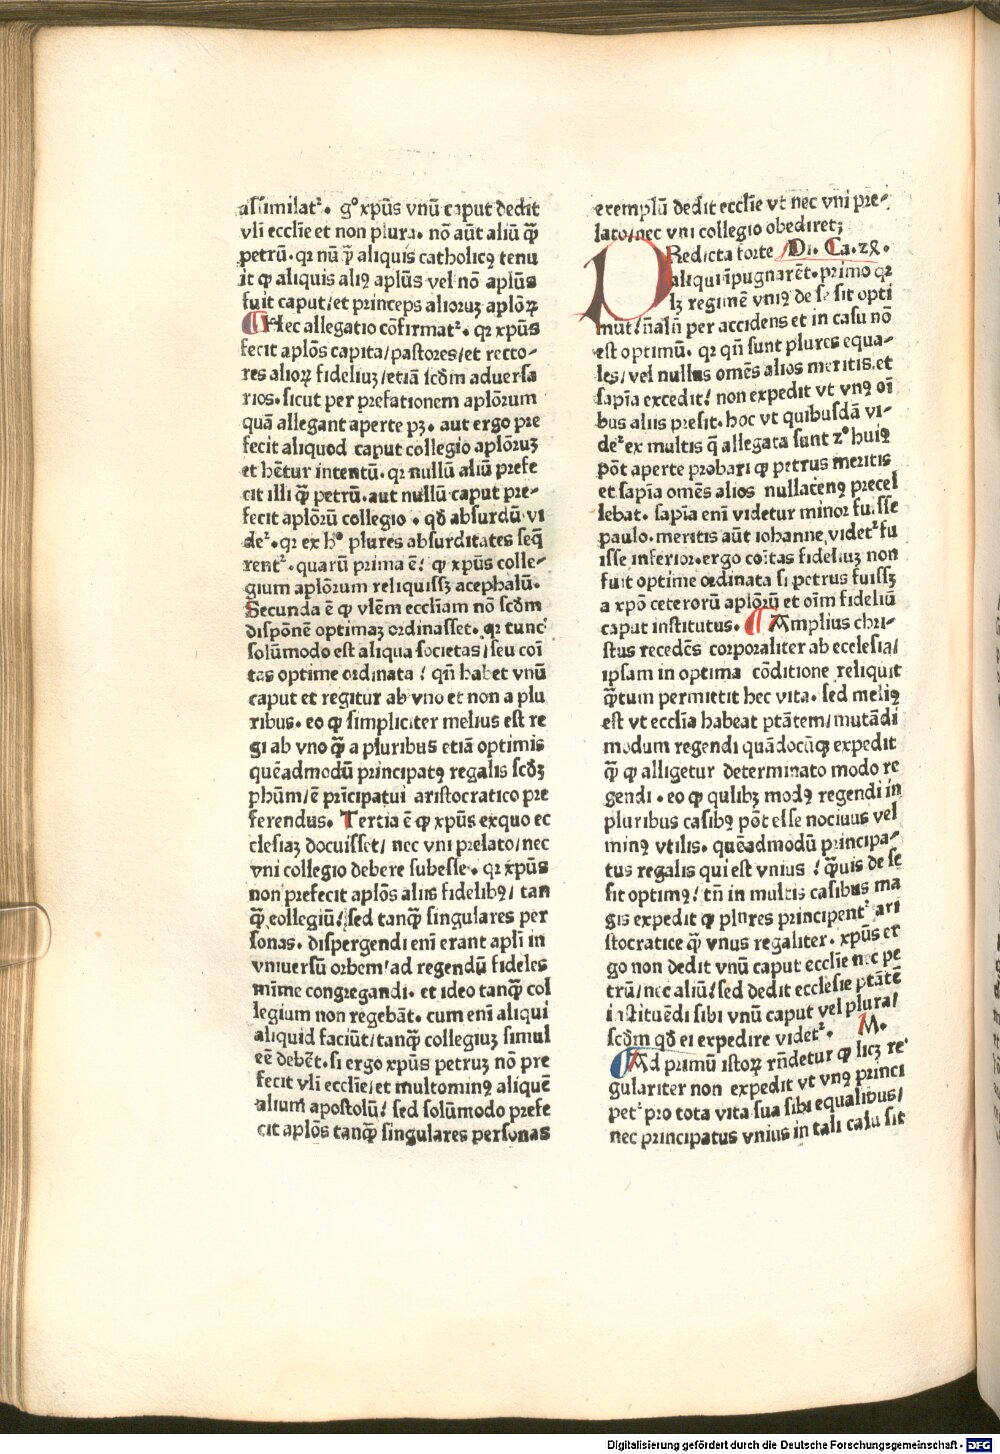 assimilat². g° xp̄us vnū caput dedit
vli eccl̄ie et non plura. nō aūt aliū q̄ꝫ
petrū. qꝛ nū q̄ aliquis catholicꝰ tenu
it ꝙ aliquis aliꝰ aplūs vel nō aplūs
fuit caput/et princeps alioruꝫ aplōꝝ
¶ Hec allegatio cōfirmat². qꝛ xp̄us
fecit aplōs capita/pastores/et recto⸗
res alioꝝ fideliuꝫ/etiā scd̄m aduersa
rios. sicut per prefationem aplōrum
quā allegant aperte pꝫ. aut ergo pre
fecit aliquod caput collegio aplōruꝫ
et hētur intentū. qꝛ nullū aliū prefe
cit illi q̄ꝫ petrū. aut nullū caput pre⸗
fecit aplōrū collegio. qd̄ absurdū vi
de². qꝛ ex h° plures absurditates seq̄
rent². quarū prima ē! ꝙ xp̄us colle⸗
gium aplōrum reliquissꝫ acephalū.
Secunda ē ꝙ vlēm eccl̄iam nō scd̄m
dispōnē optimaꝫ ordinasset. qꝛ tunc
solūmodo est aliqua societas/seu coī
tas optime ordinata! qn̄ habet vnū
caput et regitur ab vno et non a plu
ribus. eo ꝙ simpliciter melius est re
gi ab vno q̄ꝫ a pluribus etiā optimis
quēadmodū principatꝰ regalis scd̄ꝫ
phūm/ē prīcipatui aristocratico pre
ferendus. Tertia ē ꝙ xp̄us exquo ec
clesiaꝫ docuisset/ nec vni prelato/nec
vni collegio debere subesse. qꝛ xp̄us
non prefecit aplōs aliis fidelibꝰ/ tan
q̄ꝫ collegiū! sed tanq̄ꝫ singulares per
sonas. dispergendi enī erant apl̄i in
vniuersū orbem/ad regendū fideles
mīme congregandi. et ideo tanq̄ꝫ col
legium non regebāt. cum enī aliqui
aliquid faciūt/tanq̄ꝫ collegiuꝫ simul
eē debēt. si ergo xp̄us petruꝫ nō pre
fecit vli eccl̄ie/et multominꝰ aliquē
alium apostolū! sed solūmodo prefe
cit aplōs tanq̄ꝫ singulares personas
exemplū dedit eccl̄ie vt nec vni pre⸗
lato/nec vni collegio obediret;
PRedicta forte Di. Ca. ꝛꝛ.
aliqui īpugnarēt. primo qꝛ
lꝫ regimē vniꝰ de se sit opti
mūt! n̄aln̄ per accidens et in casu nō
est optimū. qꝛ qn̄ sunt plures equa⸗
les/vel nullus omēs alios meritis et
sapīa excedit! non expedit vt vnꝰ oī
bus aliis presit. hoc vt quibusdā vi⸗
de² ex multis q̄ allegata sunt ꝛ° huiꝰ
pōt aperte probari ꝙ petrus meritis
et sapīa omēs alios nullatenꝰ precel
lebat. sapīa enī videtur minor fuisse
paulo. meritis aūt iohanne videt² fu
isse inferior. ergo coītas fideliuꝫ non
fuit optime ordinata si petrus fuissꝫ
a xpō ceterorū aplōrū et oīm fideliū
caput institutus. ¶ Amplius chri⸗
stus recedēs corporaliter ab ecclesia/
ipsam in optima cōditione reliquit
q̄ꝫtum permittit hec vita. sed meliꝰ
est vt eccl̄ia habeat ptātem/mutādi
modum regendi quādocūqꝫ expedit
q̄ꝫ ꝙ alligetur determinato modo re
gendi. eo ꝙ qulibꝫ modꝰ regendi in
pluribus casibꝰ pōt esse nociuus vel
minꝰ vtilis. quēadmodū principa⸗
tus regalis qui est vnius! q̄ꝫuis de se
sit optimꝰ! tn̄ in multis casibus ma
gis expedit ꝙ plures principent² ari
stocratice q̄ꝫ vnus regaliter. xp̄us er
go non dedit vnū caput eccl̄ie nec pe
trū/nec aliū! sed dedit ecclesie ptātē
instituēdi sibi vnū caput vel plura/
scd̄m qd̄ ei expedire videt². M.
¶ Ad primū istoꝝ rn̄detur ꝙ licꝫ re⸗
gulariter non expedit vt vnꝰ princi
pet² pro tota vita sua sibi equalibus/
nec principatus vnius in tali casu sit
Digitalisierung gefördert durch die Deutsche Forschungsgemeinschaft - DFG